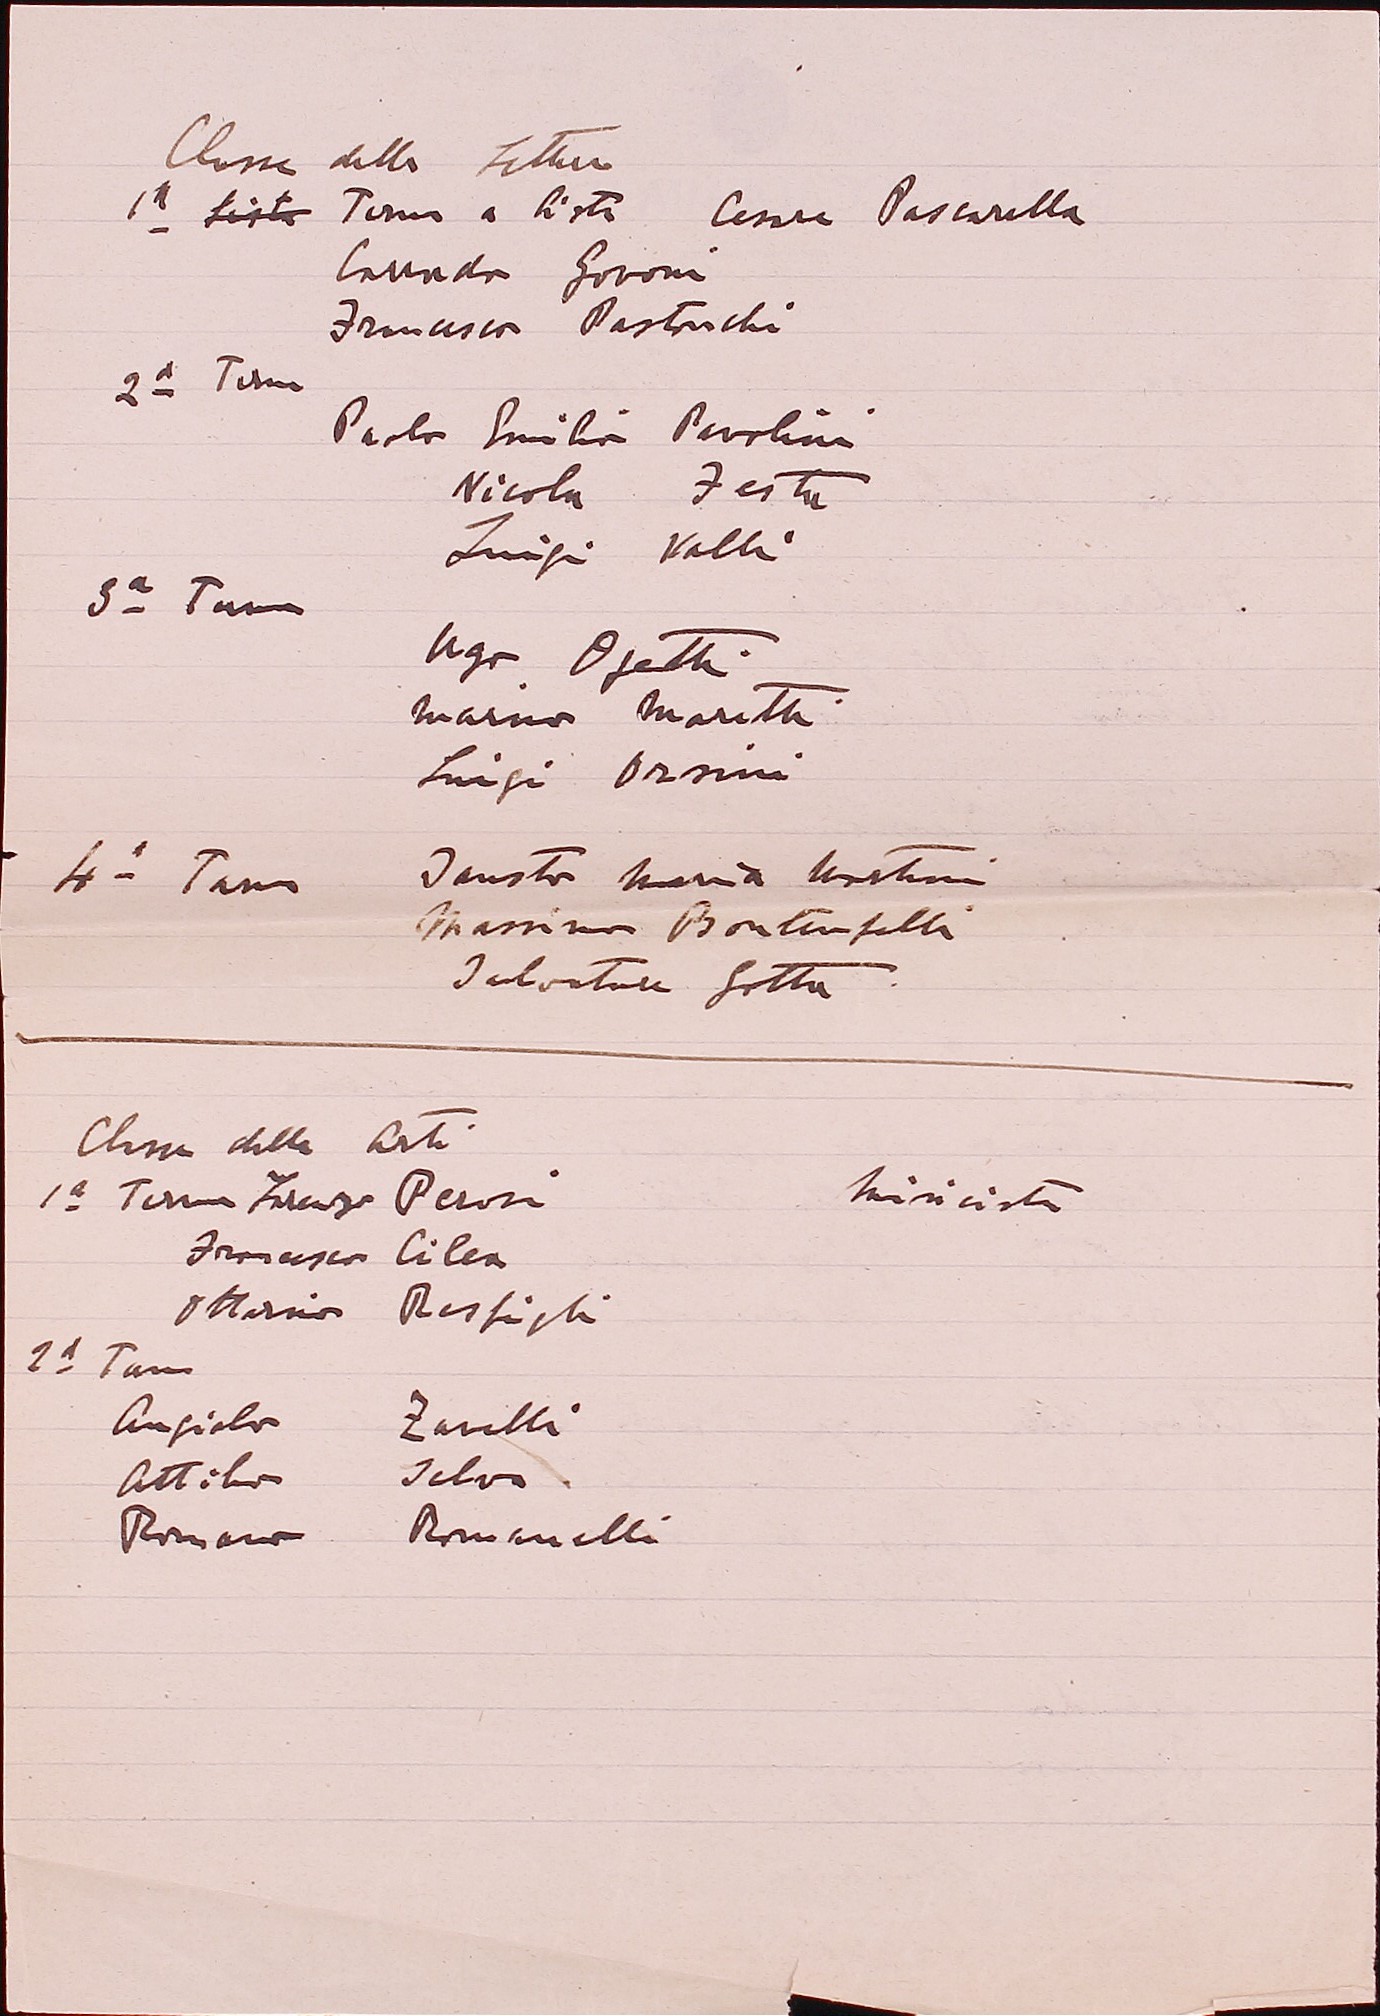 Classe delle Lettere
1a Lista Terna a lista Cesare Pascarella
Corrado Govoni
Francesco Pastonchi
2a Terna
Paolo Emilio Pavolini
Nicola Festa
Luigi Valli
3a Terna
Ugo Ojetti
Marino Moretti
Luigi Orsini
4a Terna Fausto Maria Martini
Massimo Bontempelli
Salvatore Gotta
Classe delle Arti
1a Terna Lorenzo Perosi Musicista
Francesco Cilea
Ottorino Respighi
2a Terna
Angiolo Zanelli
Attilio Selva
Romano Romanelli